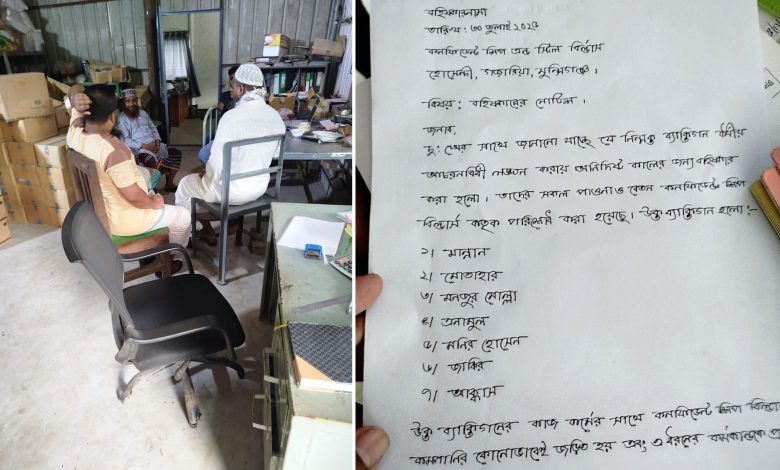 বহিষ্কারনামা
তারিখ: ৩০ জুলাই ২০২৫
কনফিডেন্ট শিপ অন্ড স্টিল বিল্ডার্স
হোসেন্দী, গজারিয়া, মুন্সিগঞ্জ।
বিষয়: বহিষ্কারের নোটিশ।
জনাব,
দু:খের সাথে জানানো যাচ্ছে যে নিম্নোক্ত ব্যাক্তিগন কর্মীয়
আচরনবিধী লঙ্ঘন করায় অনির্দিষ্ট কালের জন্য বহিষ্কার
করা হলো। তাদের সকল পাওনা ও বেতন কনফিডেন্ট শিপ
বিল্ডার্স কতৃক পরিশোধ করা হয়েছে। উক্ত ব্যাক্তিগন হলো:-
১। মান্নান
২। মোতাহার
৩। মনজুর মোল্লা
৪। এনামুল
৫। মনির হোসেন
৬। জাকির
৭। আক্কাস
উক্ত ব্যাক্তিগনের কাজ কর্মের সাথে কনফিডেন্ট শিপ বিল্ডা
কোম্পানির কোনোভাবেই জড়িত হয় এবং এ ধরনের কর্মকান্ডকে